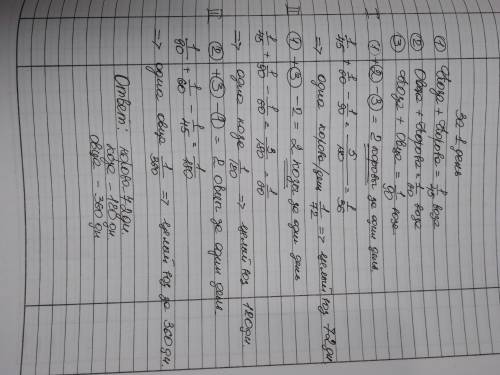 За 1 день
① 1коза + 1корова = 1/45 воза
② 1овца + 1корова = 1/60 воза
③ 1коза + 1овца = 1/90 воза
I ① + ② - ③ = 2 коровы за один день
1/45 + 1/60 - 1/90 = 5/180 = 1/36
=> одна корова/день 1/72 => целый воз 72дн
II ① + ③ - 2 = 2 козы за один день
1/45 + 1/90 - 1/60 = 3/180 = 1/60
=> одна коза 1/120 => целый воз 120дн.
III ② + ③ - ① = 2 овцы за один день.
1/90 + 1/60 - 1/45 = 1/180
=> одна овца 1/360 => целый воз за 360дн.
Ответ: корова 72дн.
коза - 120дн
овца - 360дн